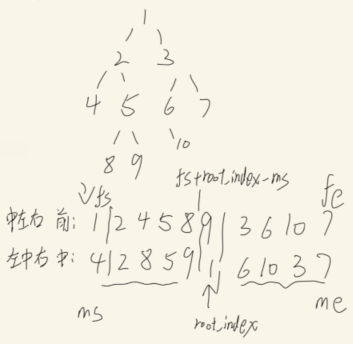 1
2 3
4 5 6 7
8 9 10
fs fs+root_index-ms fe
中左右 前: 1|2 4 5 8 9| 3 6 10 7
左中右 中: 4|2 8 5 9|1| 6 10 3 7
ms root_index me